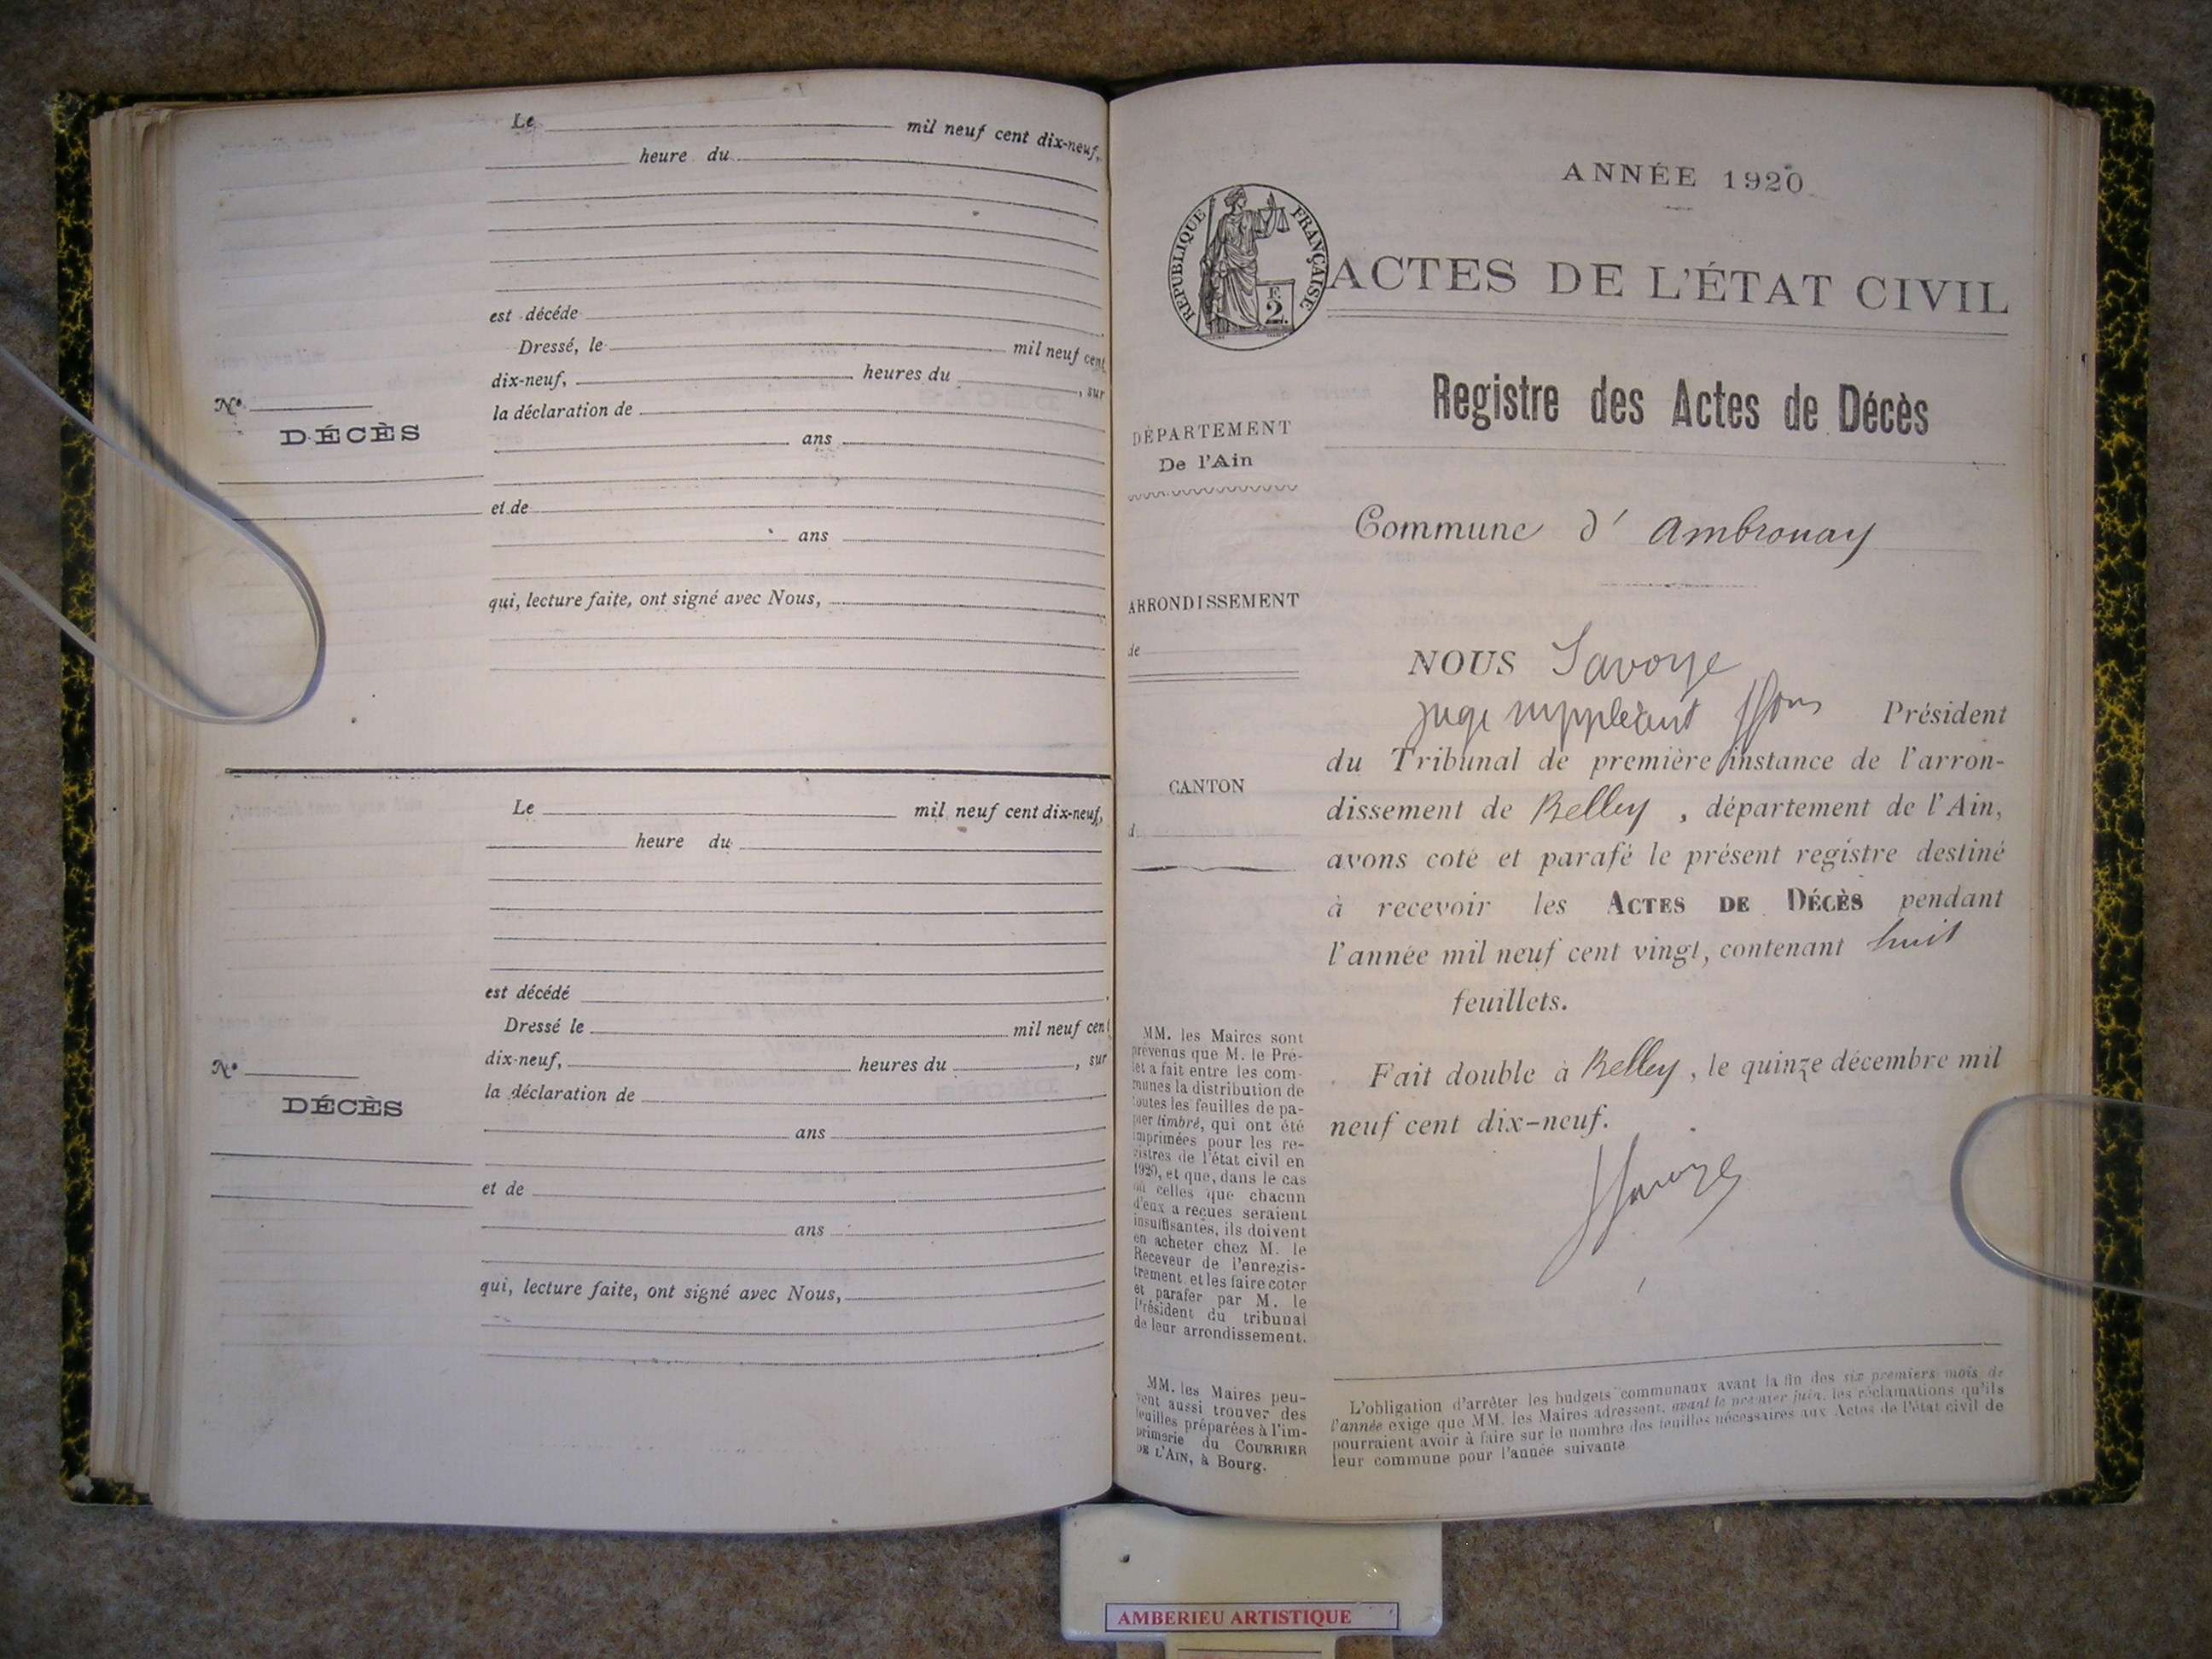 Le mil neuf cent dix-neuf,
heure du
est décédé
Dressé, le mil neuf cent
dix-neuf, heures du , sur
la déclaration de
ans
et de
ans
qui, lecture faite, ont signé avec Nous,
N°
DÉCÈS
Le mil neuf cent dix-neuf,
heure du
est décédé
Dressé le mil neuf cent
dix-neuf, heures du , sur
la déclaration de
ans
et de
ans
qui, lecture faite, ont signé avec Nous,
N°
DÉCÈS
ANNÉE 1920
RÉPUBLIQUE FRANÇAISE
F.
2.
ACTES DE L'ÉTAT CIVIL
Registre des Actes de Décès
DÉPARTEMENT
De l'Ain
Commune d' Ambronay
ARRONDISSEMENT
de
CANTON
d
NOUS Savoye
juge suppléant Président
du Tribunal de première instance de l'arron-
dissement de Belley , département de l'Ain,
avons coté et parafé le présent registre destiné
à recevoir les ACTES DE DÉCÈS pendant
l'année mil neuf cent vingt, contenant huit
feuillets.
Fait double à Belley , le quinze décembre mil
neuf cent dix-neuf.
Savoye
MM. les Maires sont
prévenus que M. le Pré-
fet a fait entre les com-
munes la distribution de
toutes les feuilles de pa-
pier timbré, qui ont été
imprimées pour les re-
gistres de l'état civil en
1920, et que, dans le cas
où celles que chacun
d'eux a reçues seraient
insuffisantes, ils doivent
en acheter chez M. le
Receveur de l'enregis-
trement et les faire coter
et parafer par M. le
Président du tribunal
de leur arrondissement.
MM. les Maires peu-
vent aussi trouver des
feuilles préparées à l'im-
primerie du COURRIER
DE L'AIN, à Bourg.
L'obligation d'arrêter les budgets communaux avant la fin des six premiers mois de
l'année exige que MM. les Maires adressent, avant le premier juin, les réclamations qu'ils
pourraient avoir à faire sur le nombre des feuilles nécessaires aux Actes de l'état civil de
leur commune pour l'année suivante
AMBERIEU ARTISTIQUE